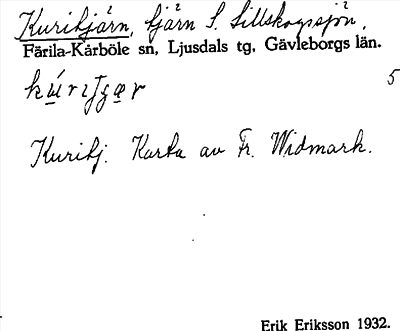 Kuritjärn, tjärn S. Lillskogssjön.
Färila-Kårböle sn, Ljusdals tg, Gävleborgs län.
5
Kuritj. Karta av Fr. Widmark.
Erik Eriksson 1932.